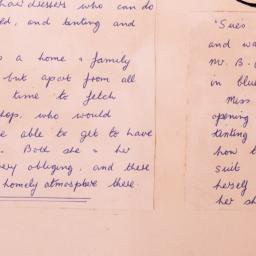 hairdressers who can do
ed, and tinting and
s a home & family
but apart from all
time to fetch
hops, who would
e able to get to have
. Both she & her
very obliging, and there
homely atmosphere there.
'Sues
and wa
Mr. B.
in blue
Miss
opening
tinting
how t
suit
herself
her sh